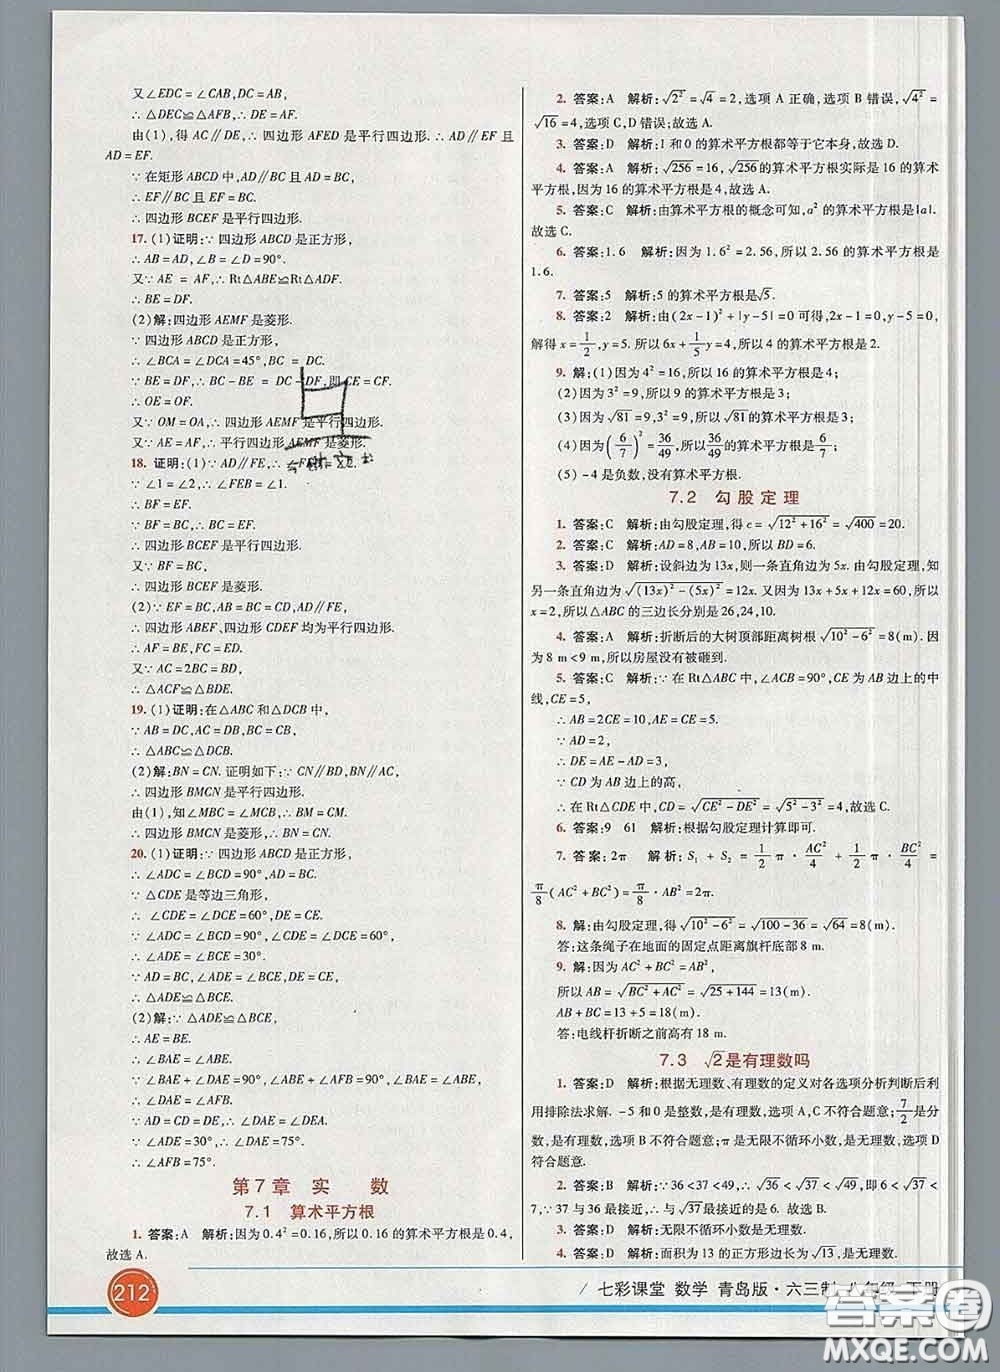 又∠EDC=∠CAB,DC=AB,
∴△DEC≌△AFB,∴DE=AF.
由(1),得 AC∥DE,∴四边形 AFED 是平行四边形.∴AD∥EF 且
AD=EF.
∵在矩形 ABCD 中,AD∥BC 且 AD=BC,
∴EF∥BC 且 EF=BC.
∴四边形 BCEF 是平行四边形.
17. (1)证明:∵四边形 ABCD 是正方形,
∴AB=AD,∠B=∠D=90°.
又∵AE=AF,∴Rt△ABE≌Rt△ADF.
∴BE=DF.
(2)解:四边形 AEMF 是菱形.
∵四边形 ABCD 是正方形,
∴∠BCA=∠DCA=45°,BC=DC.
∵BE=DF,∴BC-BE=DC-DF,即 CE=CF.
∴OE=OF.
又∵OM=OA,∴四边形 AEMF 是平行四边形.
又∵AE=AF,∴平行四边形 AEMF 是菱形.
18. 证明:(1)∵AD∥FE,∴∠FEB=∠2.
∵∠1=∠2,∴∠FEB=∠1.
∴BF=EF.
∵BF=BC,∴BC=EF.
∴四边形 BCEF 是平行四边形.
又∵BF=BC,
∴四边形 BCEF 是菱形.
(2)∵EF=BC,AB=BC=CD,AD∥EF,
∴四边形 ABEF、四边形 CDEF 均为平行四边形.
∴AF=BE,FC=ED.
又∵AC=2BC=BD,
∴△ACF≌△BDE.
19. (1)证明:在△ABC 和△DCB 中,
∵AB=DC,AC=DB,BC=CB,
∴△ABC≌△DCB.
(2)解:BN=CN. 证明如下:∵CN∥BD,BN∥AC,
∴四边形 BMCN 是平行四边形.
由(1),知∠MBC=∠MCB,∴BM=CM.
∴四边形 BMCN 是菱形,∴BN=CN.
20. (1)证明:∵四边形 ABCD 是正方形,
∴∠ADC=∠BCD=90°,AD=BC.
∵△CDE 是等边三角形,
∴∠CDE=∠DCE=60°,DE=CE.
∵∠ADC=∠BCD=90°,∠CDE=∠DCE=60°,
∴∠ADE=∠BCE=30°.
∵AD=BC,∠ADE=∠BCE,DE=CE,
∴△ADE≌△BCE.
(2)解:∵△ADE≌△BCE,
∴AE=BE.
∴∠BAE=∠ABE.
∵∠BAE+∠DAE=90°,∠ABE+∠AFB=90°,∠BAE=∠ABE,
∴∠DAE=∠AFB.
∵AD=CD=DE,∴∠DAE=∠DEA.
∵∠ADE=30°,∴∠DAE=75°.
∴∠AFB=75°.
第 7 章 实 数
7.1 算术平方根
1. 答案:A 解析:因为 0.4²=0.16,所以 0.16 的算术平方根是 0.4,
故选 A.
2. 答案:A 解析:√2²=√4=2,选项 A 正确,选项 B 错误,√4²=
√16=4,选项 C,D 错误;故选 A.
3. 答案:D 解析:1 和 0 的算术平方根都等于它本身,故选 D.
4. 答案:A 解析:√256=16,√256的算术平方根实际是 16 的算术
平方根,因为 16 的算术平方根是 4,故选 A.
5. 答案:C 解析:由算术平方根的概念可知,a² 的算术平方根是|a|.
故选 C.
6. 答案:1.6 解析:因为 1.6²=2.56,所以 2.56 的算术平方根是
1.6.
7. 答案:5 解析:5 的算术平方根是√5.
8. 答案:2 解析:由(2x-1)²+|y-5|=0 可得,2x-1=0,y-5=0,
解得 x=1/2,y=5. 所以 6x+1/5y=4,所以 4 的算术平方根是 2.
9. 解:(1)因为 4²=16,所以 16 的算术平方根是 4;
(2)因为 3²=9,所以 9 的算术平方根是 3;
(3)因为√81=9,3²=9,所以√81的算术平方根是 3;
(4)因为(6/7)²=36/49,所以36/49的算术平方根是6/7;
(5)-4 是负数,没有算术平方根.
7.2 勾股定理
1. 答案:C 解析:由勾股定理,得 c=√(12²+16²)=√400=20.
2. 答案:C 解析:AD=8,AB=10,所以 BD=6.
3. 答案:D 解析:设斜边为 13x,则一条直角边为 5x. 由勾股定理,知
另一条直角边为√((13x)²-(5x)²)=12x. 又因为 13x+5x+12x=60,所以
x=2,所以△ABC 的三边长分别是 26,24,10.
4. 答案:A 解析:折断后的大树顶部距离树根√(10²-6²)=8(m). 因
为 8 m<9 m,所以房屋没有被砸到.
5. 答案:C 解析:∵在 Rt△ABC 中,∠ACB=90°,CE 为 AB 边上的中
线,CE=5,
∴AB=2CE=10,AE=CE=5.
∵AD=2,
∴DE=AE-AD=3.
∵CD 为 AB 边上的高,
∴在 Rt△CDE 中,CD=√(CE²-DE²)=√(5²-3²)=4. 故选 C.
6. 答案:9 61 解析:根据勾股定理计算即可.
7. 答案:2π 解析:S₁+S₂=1/2π·AC²/4+1/2π·BC²/4=
π/8(AC²+BC²)=π/8·AB²=2π.
8. 解:由勾股定理,得√(10²-6²)=√(100-36)=√64=8(m).
答:这条绳子在地面的固定点距离旗杆底部 8 m.
9. 解:因为 AC²+BC²=AB²,
所以 AB=√(BC²+AC²)=√(25+144)=13(m).
AB+BC=13+5=18(m).
答:电线杆折断之前高有 18 m.
7.3 √2是有理数吗
1. 答案:D 解析:根据无理数、有理数的定义对各选项分析判断后利
用排除法求解. -5 和 0 是整数,是有理数,选项 A,C 不符合题意;7/2是分
数,是有理数,选项 B 不符合题意;π 是无限不循环小数,是无理数,选项 D
符合题意.
2. 答案:B 解析:∵36<37<49,∴√36<√37<√49,即 6<√37<
7,∵37 与 36 最接近,∴与√37最接近的是 6.
3. 答案:D 解析:无限不循环小数是无理数.
4. 答案:D 解析:面积为 13 的正方形边长为√13,是无理数.
212
七彩课堂 数学 青岛版·六三制 八年级 下册
答案圈
MXQE.COM